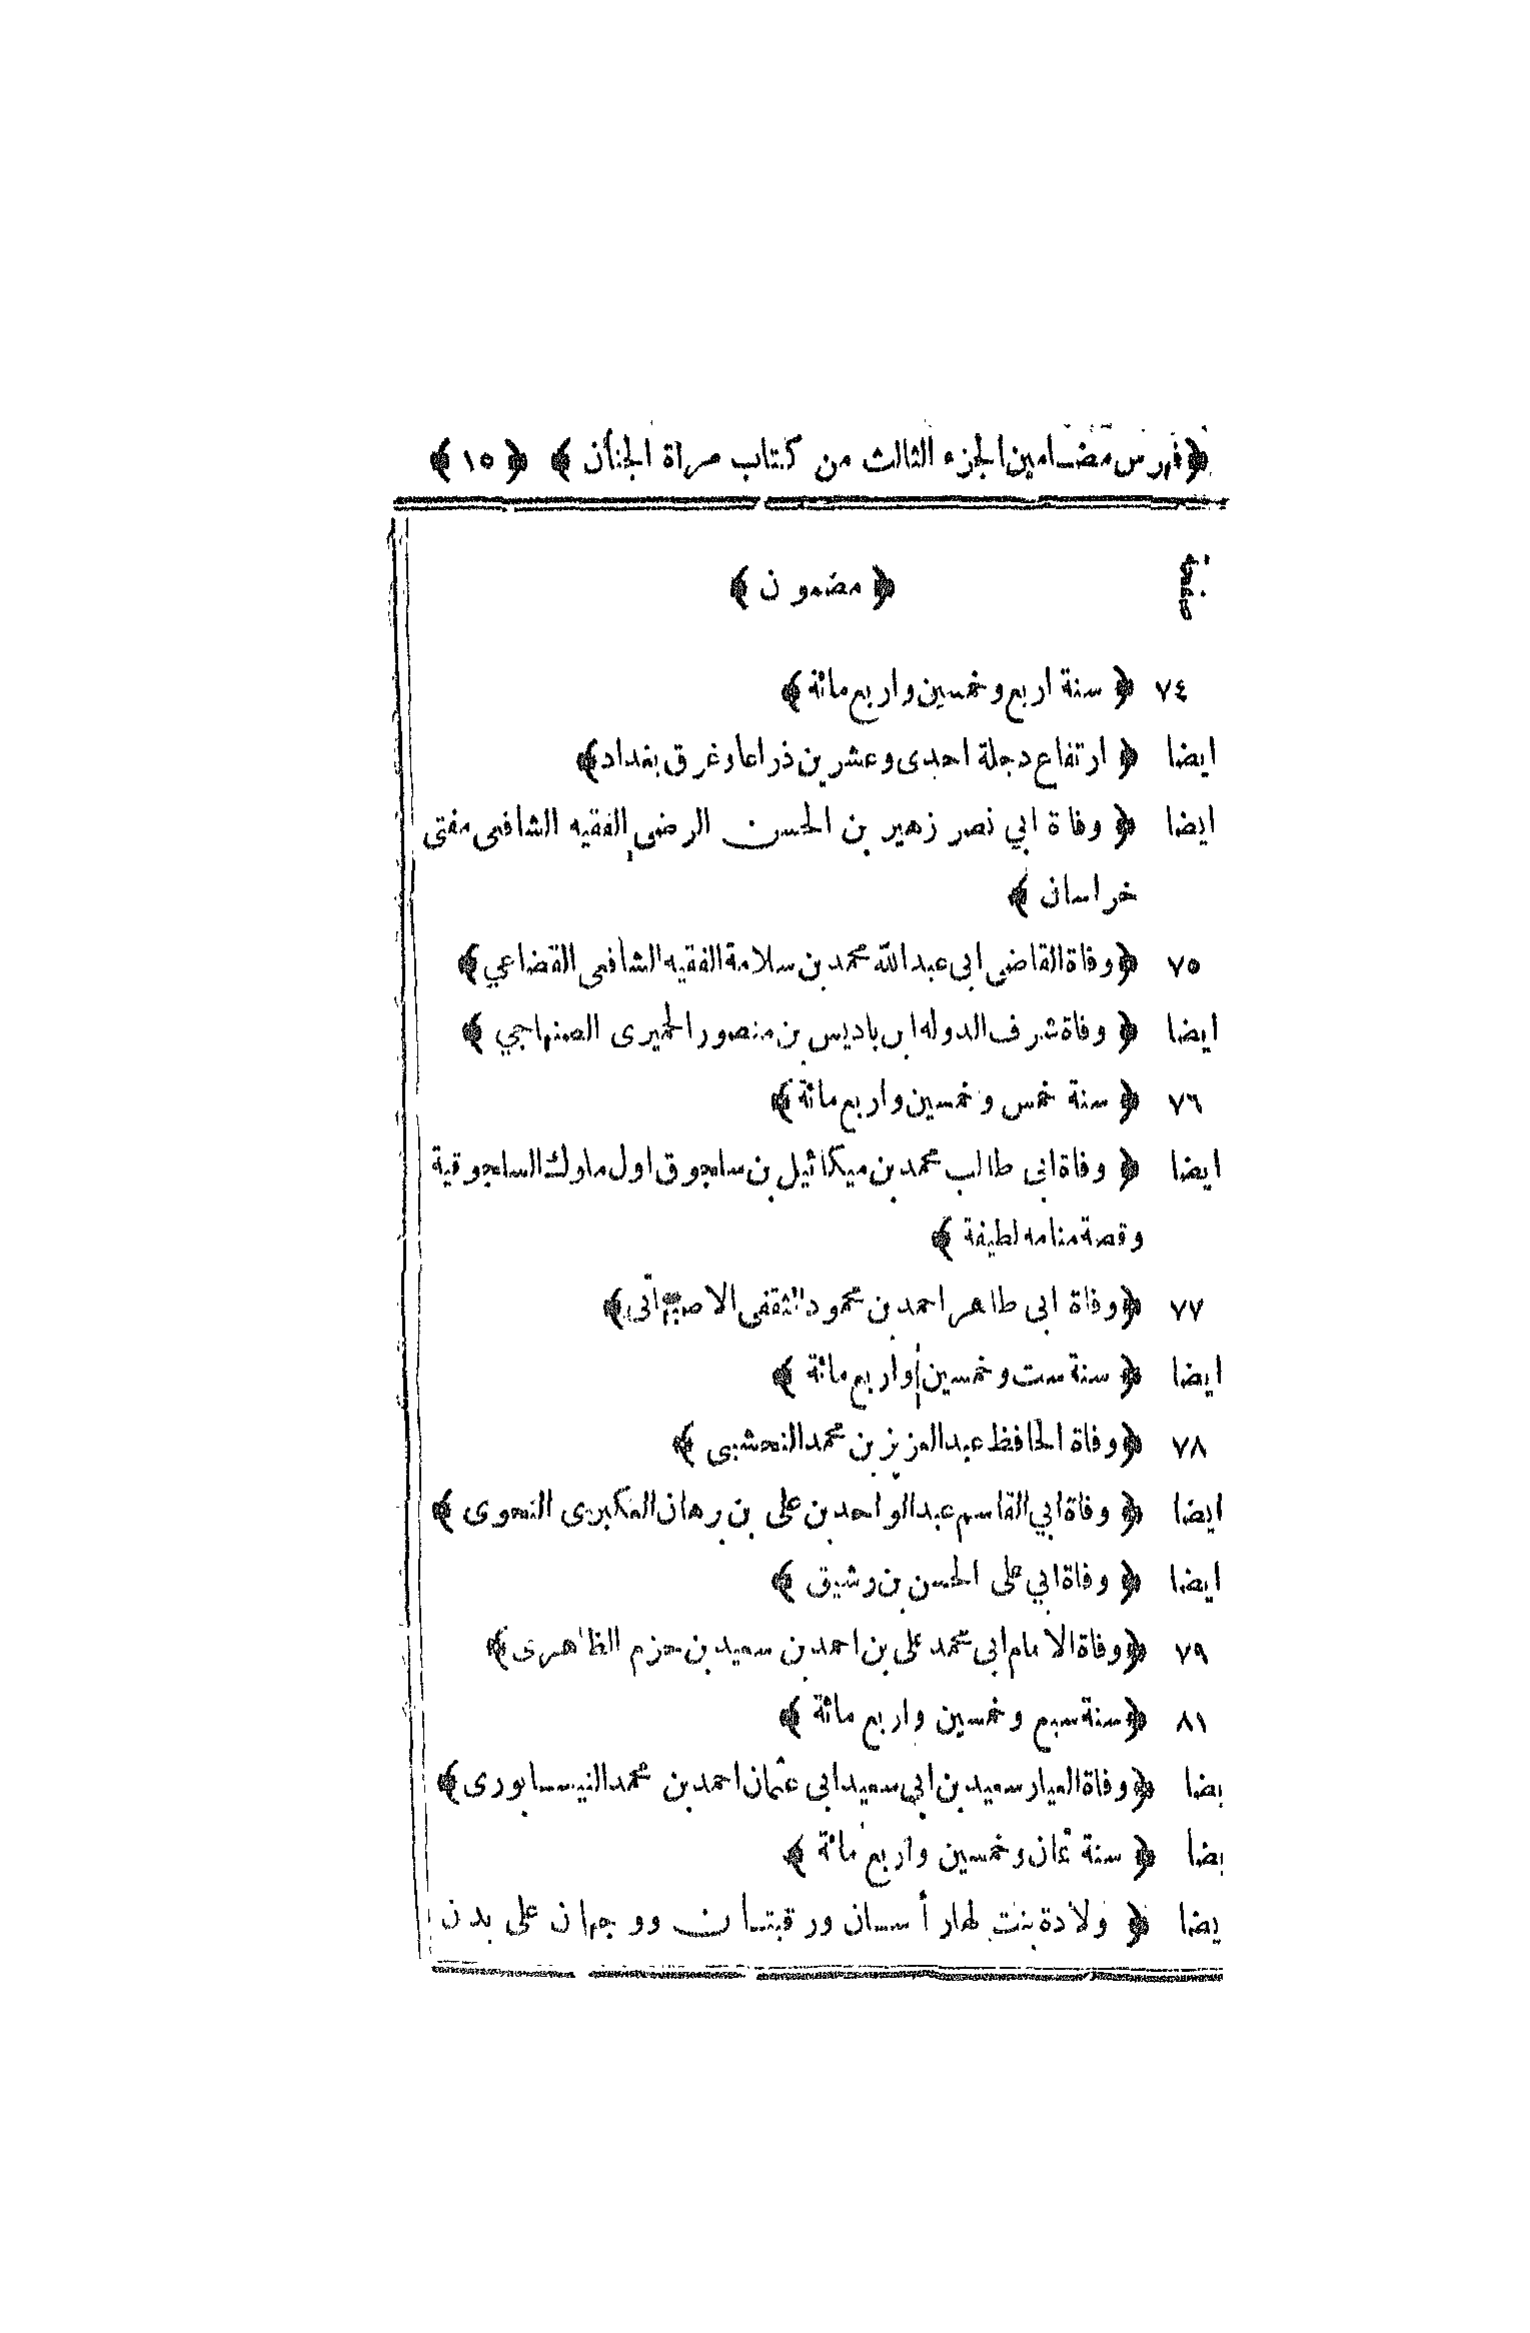 ﴿فهرس مضامين الجزء الثالث من كتاب مراة الجنان﴾ ﴿١٥﴾
صفحة ﴿مضمون﴾
٧٤ ﴿سنة اربع وخمسين واربع مائة﴾
ايضا ﴿ارتفاع دجلة احدى وعشرين ذراعا وغرق بغداد﴾
ايضا ﴿وفاة ابي نصر زهير بن الحسن الرضى الفقيه الشافعى مفتى
خراسان﴾
٧٥ ﴿وفاة القاضى ابى عبد الله محمد بن سلامة الفقيه الشافعى القضاعي﴾
ايضا ﴿وفاة شرف الدوله ابن باديس بن منصور الحميرى الصنهاجي﴾
٧٦ ﴿سنة خمس وخمسين واربع مائة﴾
ايضا ﴿وفاة ابى طالب محمد بن ميكائيل بن سلجوق اول ملوك السلجوقية
وقصة منامه لطيفة﴾
٧٧ ﴿وفاة ابى طاهر احمد بن محمود الثقفى الاصبهانى﴾
ايضا ﴿سنة ست وخمسين واربع مائة﴾
٧٨ ﴿وفاة الحافظ عبد العزيز بن محمد النخشبى﴾
ايضا ﴿وفاة ابي القاسم عبد الواحد بن على بن برهان العكبرى النحوى﴾
ايضا ﴿وفاة ابي على الحسن بن رشيق﴾
٧٩ ﴿وفاة الامام ابى محمد على بن احمد بن سعيد بن حزم الظاهرى﴾
٨١ ﴿سنة سبع وخمسين واربع مائة﴾
يضا ﴿وفاة العيار سعيد بن ابي سعيد ابى عثمان احمد بن محمد النيسابورى﴾
يضا ﴿سنة ثمان وخمسين واربع مائة﴾
يضا ﴿ولادة بنت لها رأسان ورقبتان ووجهان على بدن